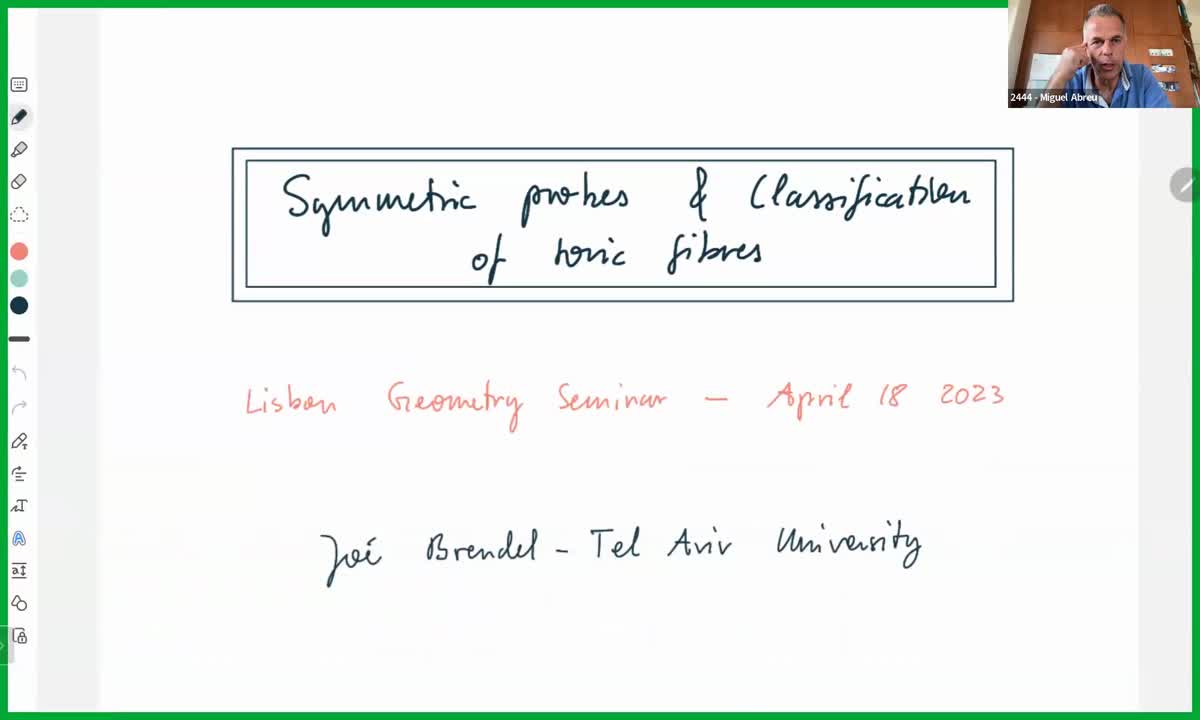 2444 - Miguel Abreu
Symmetric probes & Classification
of toric fibres
Lisbon Geometry Seminar - April 18 2023
Joé Brendel - Tel Aviv University